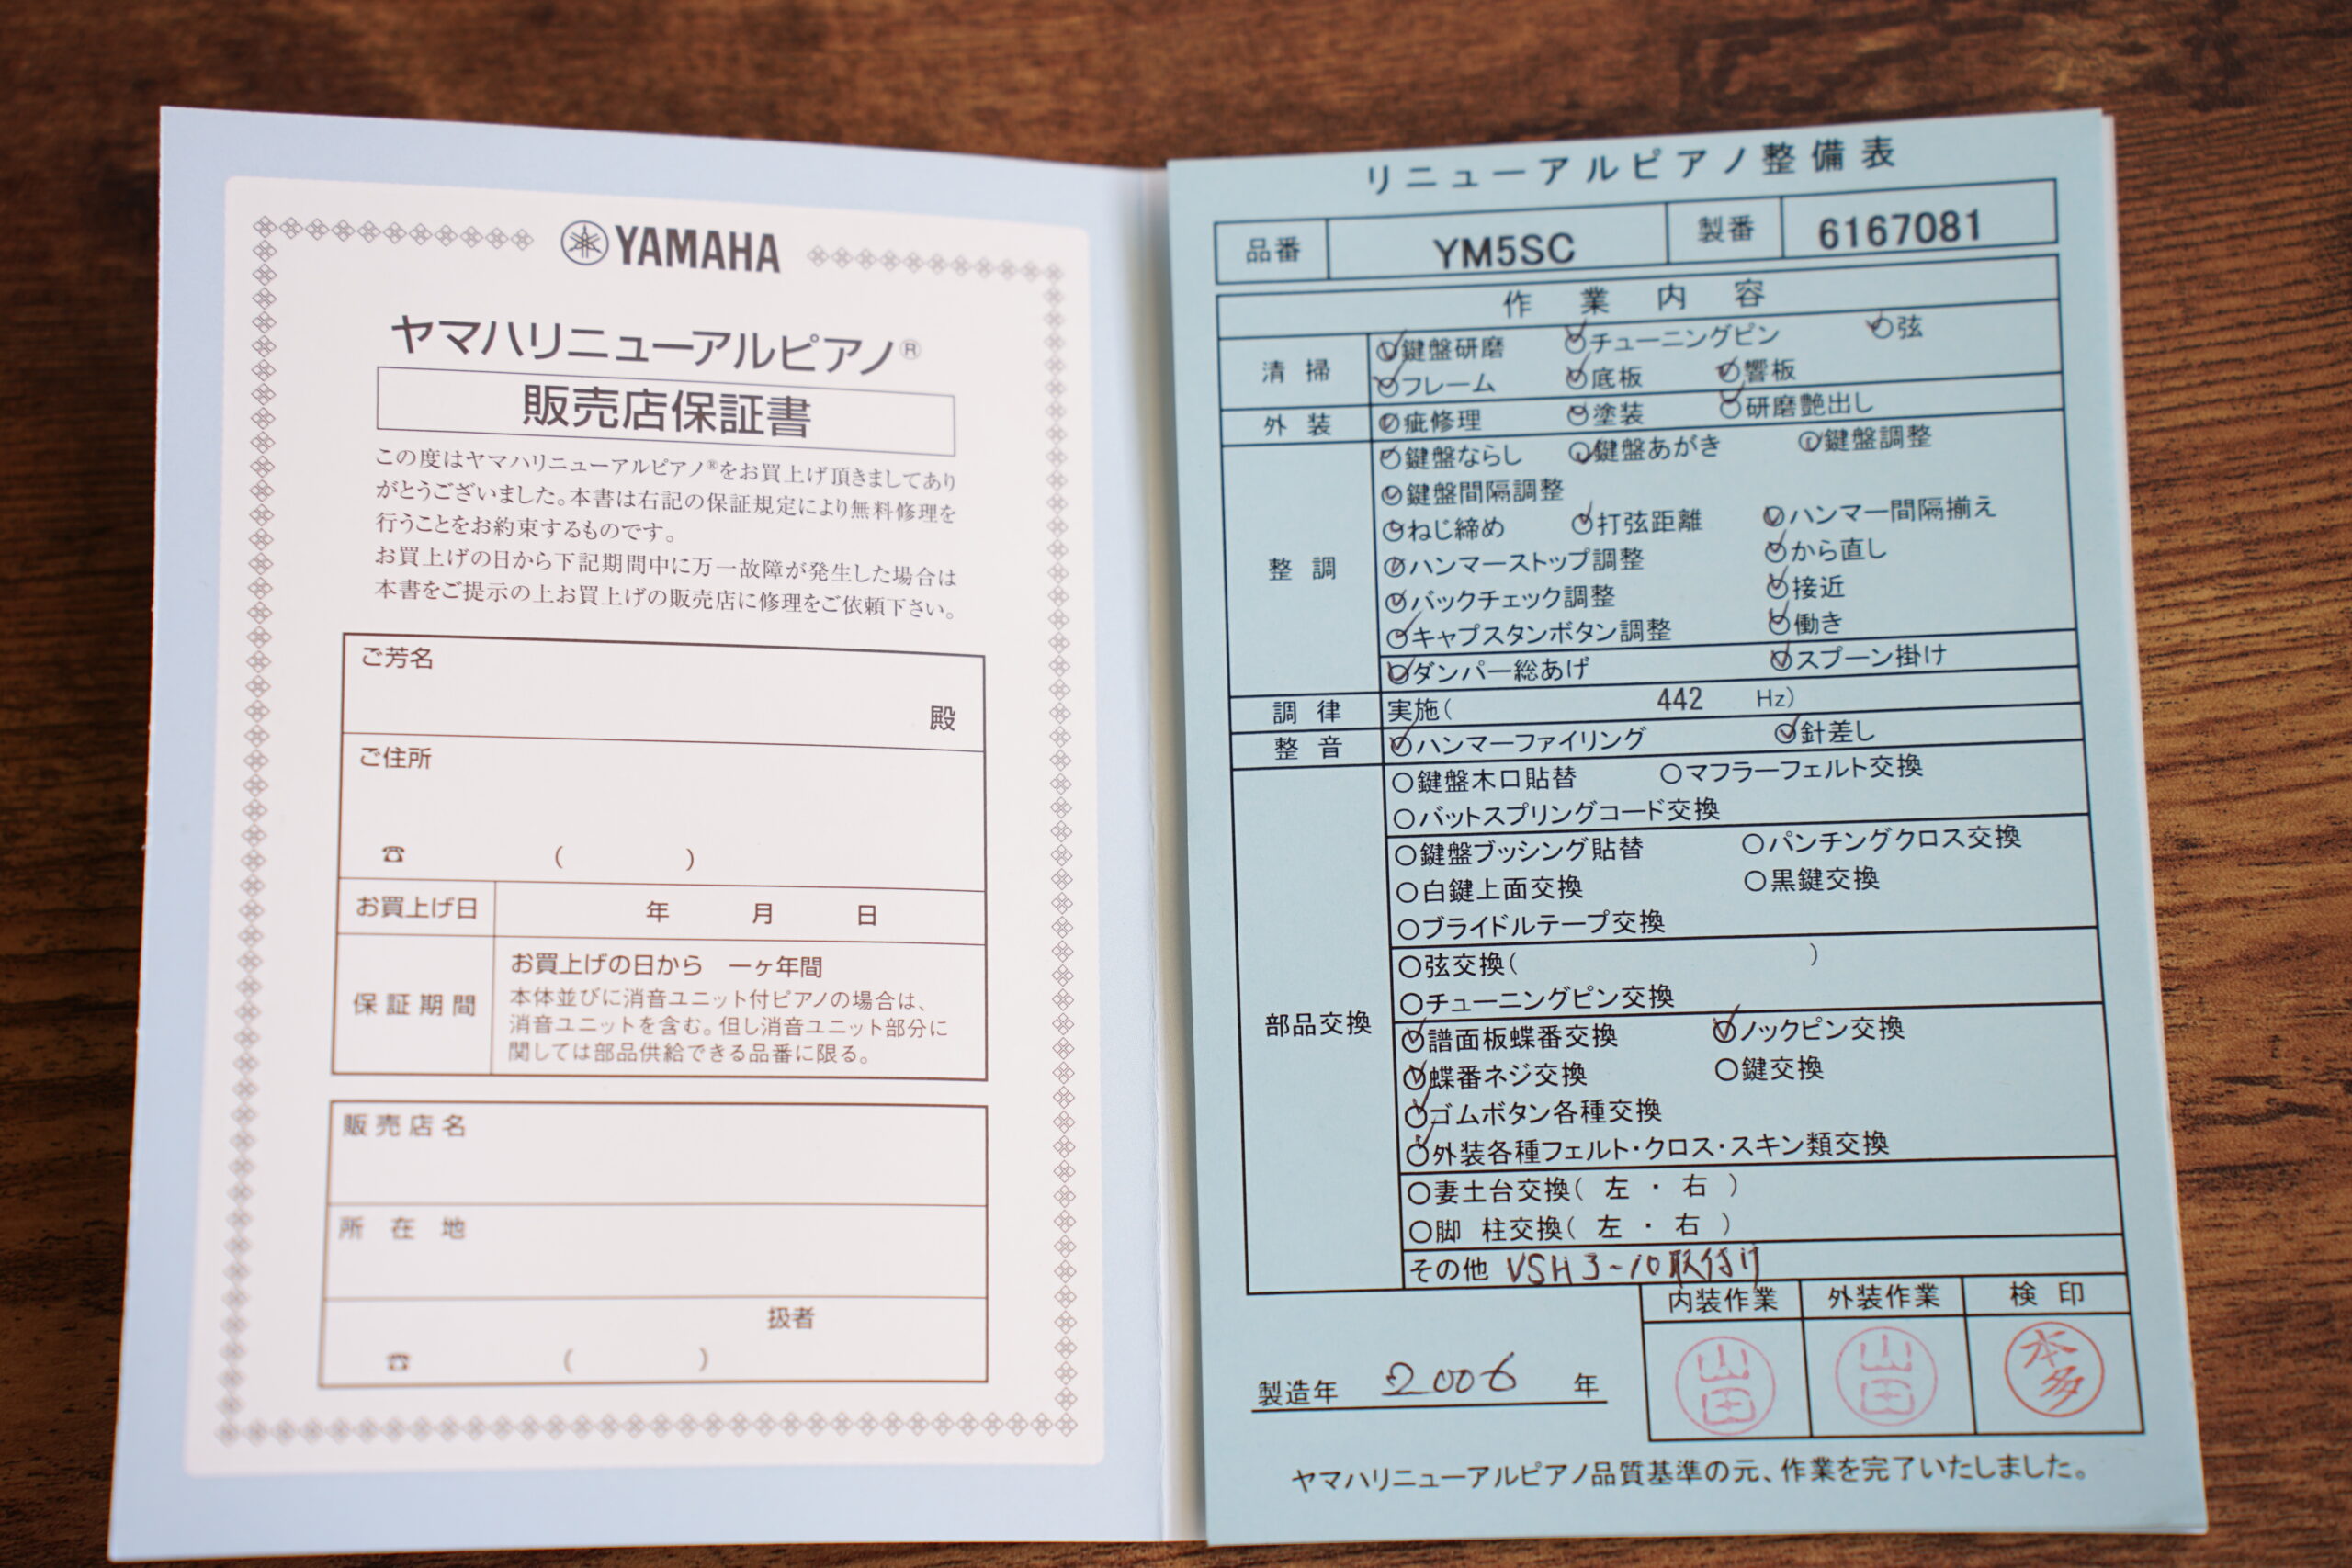 YAMAHA
ヤマハリニューアルピアノ®
販売店保証書
この度はヤマハリニューアルピアノ®をお買上げ頂きましてあり
がとうございました。本書は右記の保証規定により無料修理を
行うことをお約束するものです。
お買上げの日から下記期間中に万一故障が発生した場合は
本書をご提示の上お買上げの販売店に修理をご依頼下さい。
ご芳名
殿
ご住所
☎ ( )
お買上げ日 年 月 日
保証期間
お買上げの日から 一ヶ年間
本体並びに消音ユニット付ピアノの場合は、
消音ユニットを含む。但し消音ユニット部分に
関しては部品供給できる品番に限る。
販売店名
所在地
扱者
☎ ( )
リニューアルピアノ整備表
品番 YM5SC 製番 6167081
作業内容
清掃 ○鍵盤研磨 ○チューニングピン ○弦
○フレーム ○底板 ○響板
外装 ○疵修理 ○塗装 ○研磨艶出し
整調 ○鍵盤ならし ○鍵盤あがき ○鍵盤調整
○鍵盤間隔調整
○ねじ締め ○打弦距離 ○ハンマー間隔揃え
○ハンマーストップ調整 ○から直し
○バックチェック調整 ○接近
○キャプスタンボタン調整 ○働き
○ダンパー総あげ ○スプーン掛け
調律 実施( 442 Hz)
整音 ○ハンマーファイリング ○針差し
部品交換 ○鍵盤木口貼替 ○マフラーフェルト交換
○バットスプリングコード交換
○鍵盤ブッシング貼替 ○パンチングクロス交換
○白鍵上面交換 ○黒鍵交換
○ブライドルテープ交換
○弦交換( )
○チューニングピン交換
○譜面板蝶番交換 ○ノックピン交換
○蝶番ネジ交換 ○鍵交換
○ゴムボタン各種交換
○外装各種フェルト・クロス・スキン類交換
○妻土台交換( 左 ・ 右 )
○脚 柱交換( 左 ・ 右 )
その他 VSH3~10取付け
内装作業 外装作業 検印
山田 山田 本多
製造年 2006 年
ヤマハリニューアルピアノ品質基準の元、作業を完了いたしました。